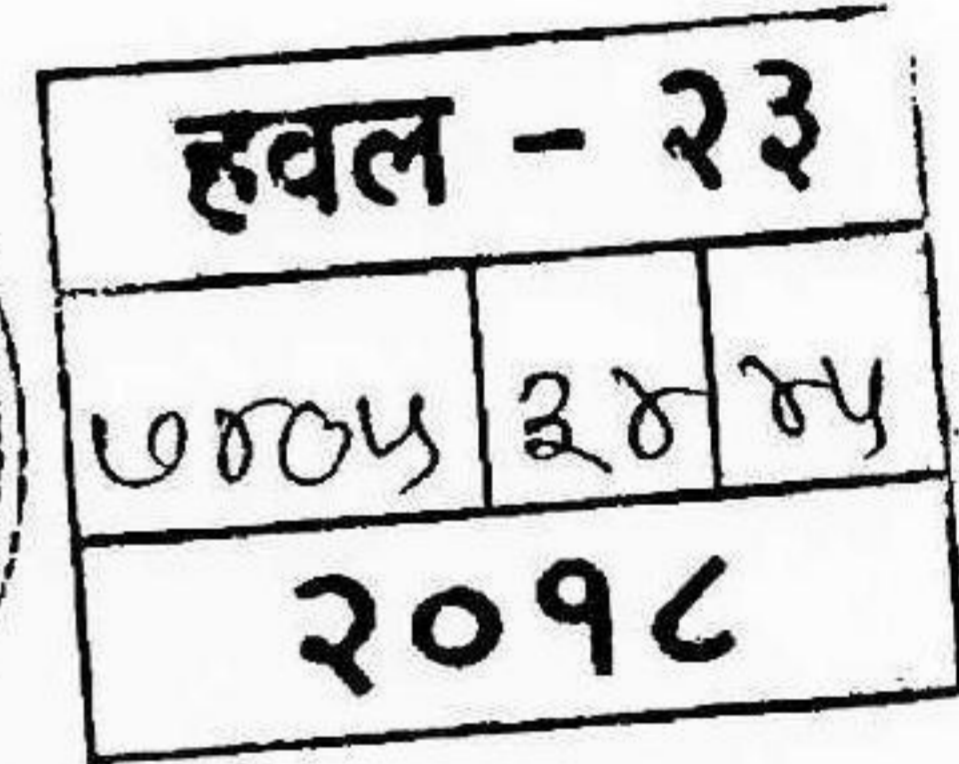 हवल - २३
७४०५ ३४ ४५
२०१८